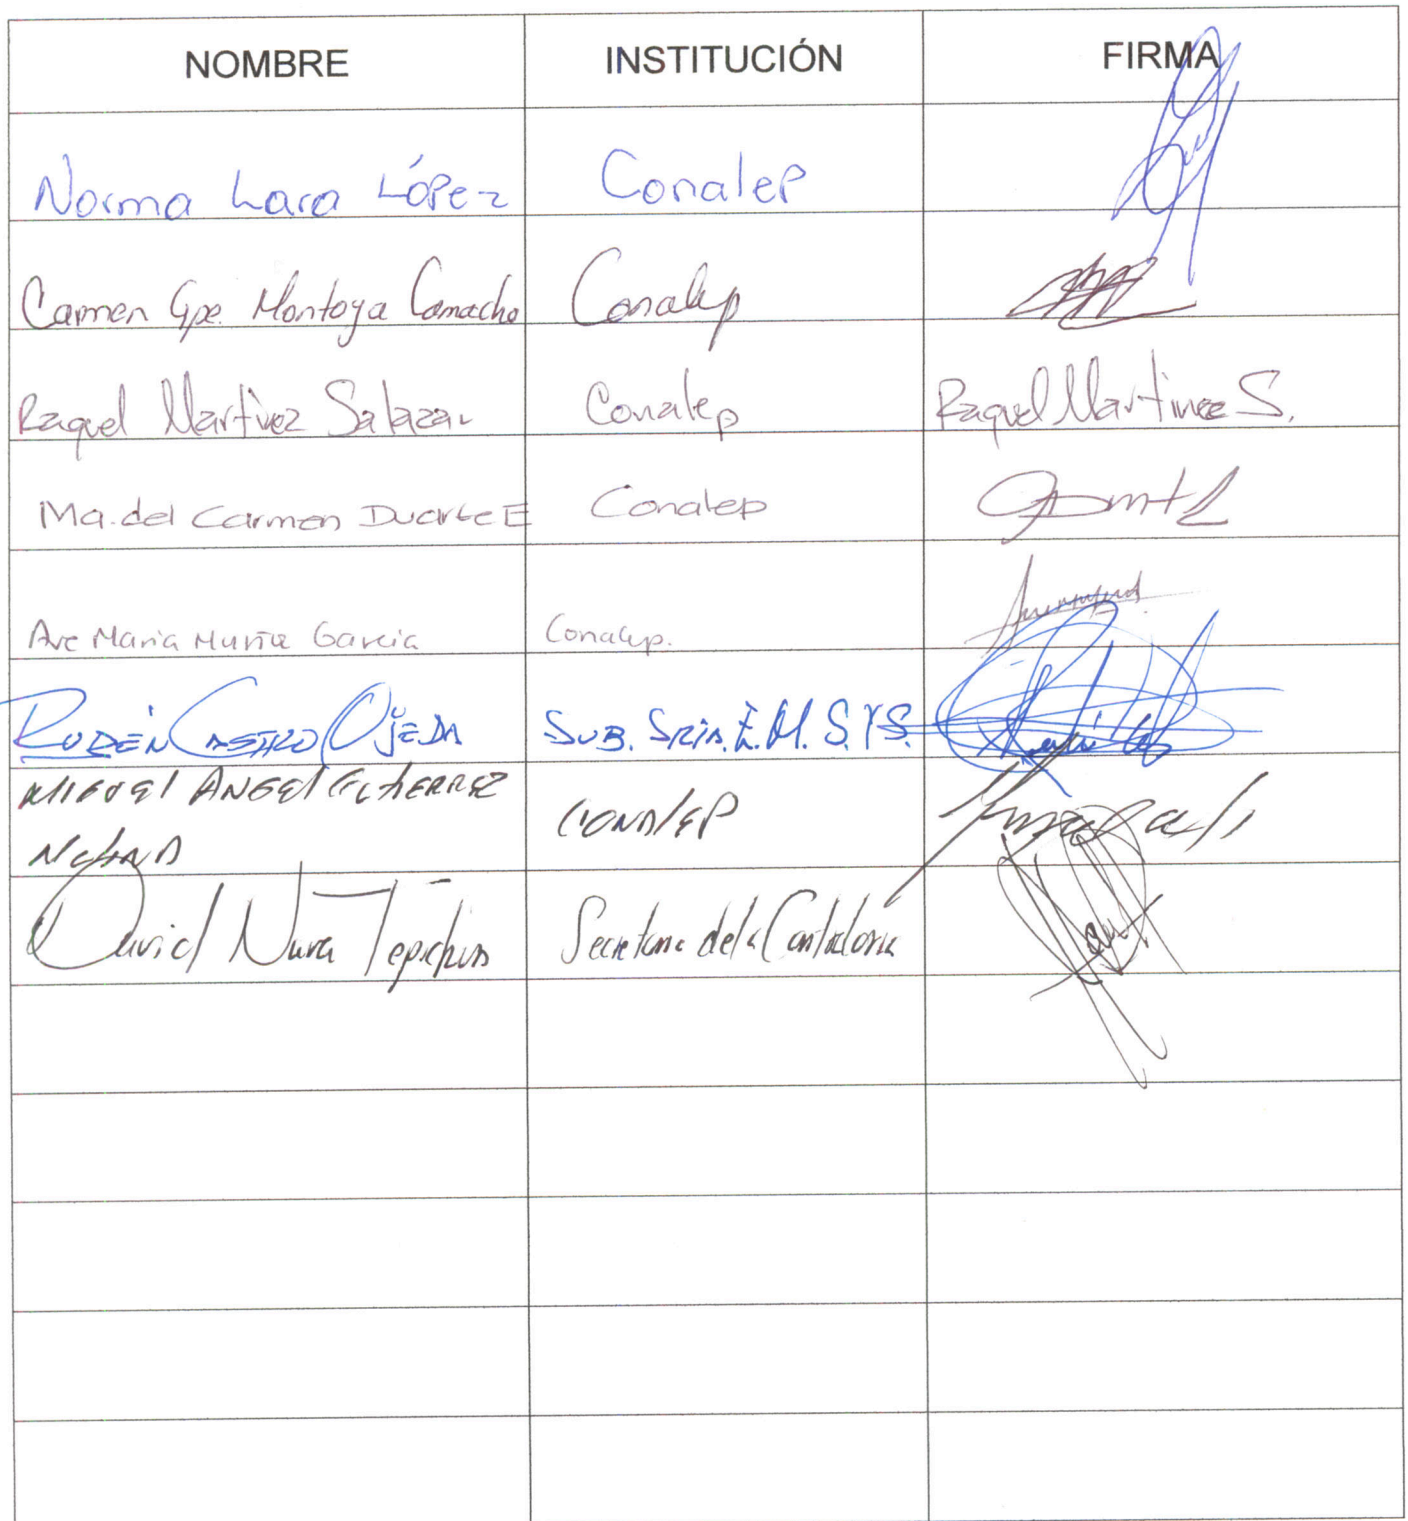 NOMBRE INSTITUCIÓN FIRMA
Norma Lara López Conalep
Carmen Gpe. Montoya Camacho Conalep
Raquel Martinez Salazar Conalep Raquel Martinez S.
Ma. del Carmen Duarte E Conalep
Ave Maria García Conalep.
Rubén Castro Ojeda Sub. Sria. E.M.S. y S.
Miguel Angel Gutierrez CONALEP
David Nava Secretaria de la Contraloría